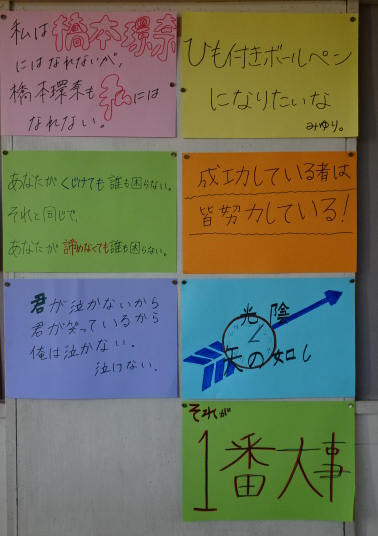 私は橋本環奈
にはなれないが、
橋本環奈も私には
なれない。
ひも付きボールペン
になりたいな
みゆり。
あなたがくじけても誰も困らない。
それと同じで、
あなたが諦めなくても誰も困らない。
成功している者は
皆努力している!
君が泣かないから
君が笑っているから
俺は泣かない.
泣けない.
光陰
矢の如し
それが
1番大事